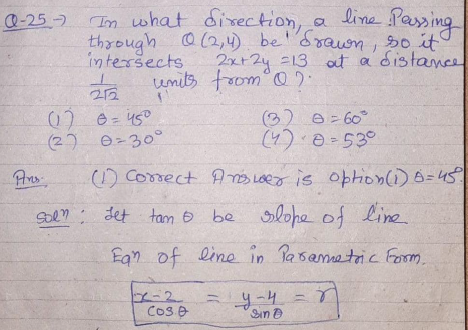 Q-25 → In what direction, a line Passing
through Q(2,4) be drawn, so it
intersects 2x+2y=13 at a distance
1/2√2 units from Q?
(1) θ = 45° (3) θ = 60°
(2) θ = 30° (4) θ = 53°
Ans. (1) Correct Answer is option(i) θ = 45°
Soln : Let tan θ be slope of line
Eqn of line in Parametric Form.
x-2/cosθ = y-4/sinθ = r